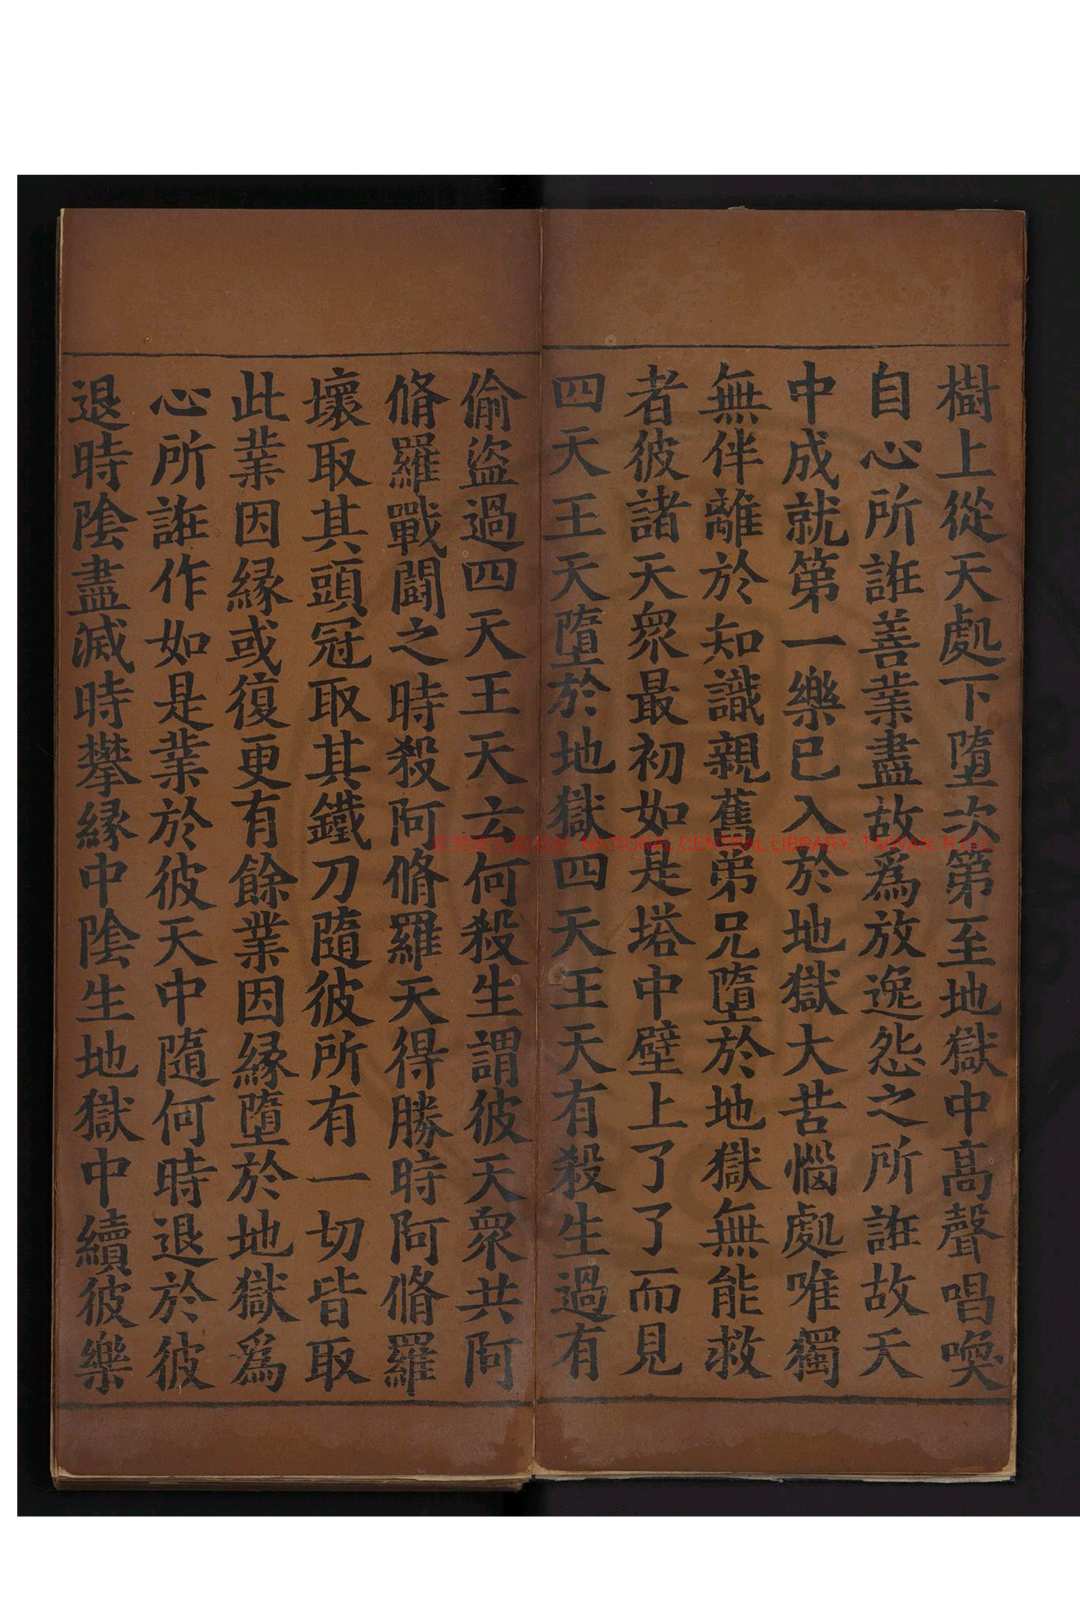 樹上從天處下墮次第至地獄中高聲唱喚
自心所誑善業盡故爲放逸怨之所誑故天
中成就第一樂已入於地獄大苦惱處唯獨
無伴離於知識親舊弟兄墮於地獄無能救
者彼諸天衆最初如是塔中壁上了了而見
四天王天墮於地獄四天王天有殺生過有
偷盜過四天王天云何殺生謂彼天衆共阿
脩羅戰鬪之時殺阿脩羅天得勝時阿脩羅
壞取其頭冠取其鐵刀隨彼所有一切皆取
此業因緣或復更有餘業因緣墮於地獄爲
心所誑作如是業於彼天中隨何時退於彼
退時陰盡滅時攀緣中陰生地獄中續彼樂
NATIONAL CENTRAL LIBRARY, TAIWAN, R.O.C.